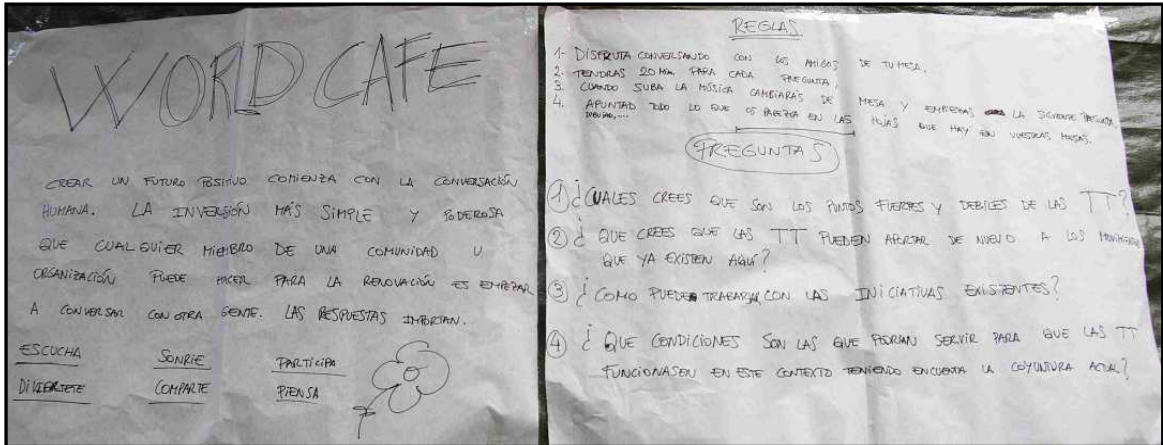 WORD CAFE
CREAR UN FUTURO POSITIVO COMIENZA CON LA CONVERSACIÓN
HUMANA. LA INVERSIÓN MÁS SIMPLE Y PODEROSA
QUE CUALQUIER MIEMBRO DE UNA COMUNIDAD U
ORGANIZACIÓN PUEDE HACER PARA LA RENOVACIÓN ES EMPEZAR
A CONVERSAR CON OTRA GENTE. LAS RESPUESTAS IMPORTAN.
ESCUCHA SONRIE PARTICIPA
DIVIERTETE COMPARTE PIENSA
REGLAS
1- DISFRUTA CONVERSANDO CON LOS AMIGOS DE TU MESA.
2- TENDRAS 20 Min PARA CADA PREGUNTA,
3. CUANDO SUBA LA MÚSICA CAMBIARÁS DE MESA Y EMPIEZAS LA SIGUIENTE PREGUNTA.
4. APUNTAD TODO LO QUE OS PAREZCA EN LAS HOJAS QUE HAY EN VUESTRAS MESAS.
DIBUJAD,....
PREGUNTAS
① ¿CUALES CREES QUE SON LOS PUNTOS FUERTES Y DEBILES DE LAS TT?
② ¿QUE CREES QUE LAS TT PUEDEN APORTAR DE NUEVO A LOS MOVIMIENTOS
QUE YA EXISTEN AQUI?
③ ¿COMO PUEDE TRABAJAR CON LAS INICIATIVAS EXISTENTES?
④ ¿QUE CONDICIONES SON LAS QUE PODRIAN SERVIR PARA QUE LAS TT
FUNCIONASEN EN ESTE CONTEXTO TENIENDO EN CUENTA LA COYUNTURA ACTUAL?